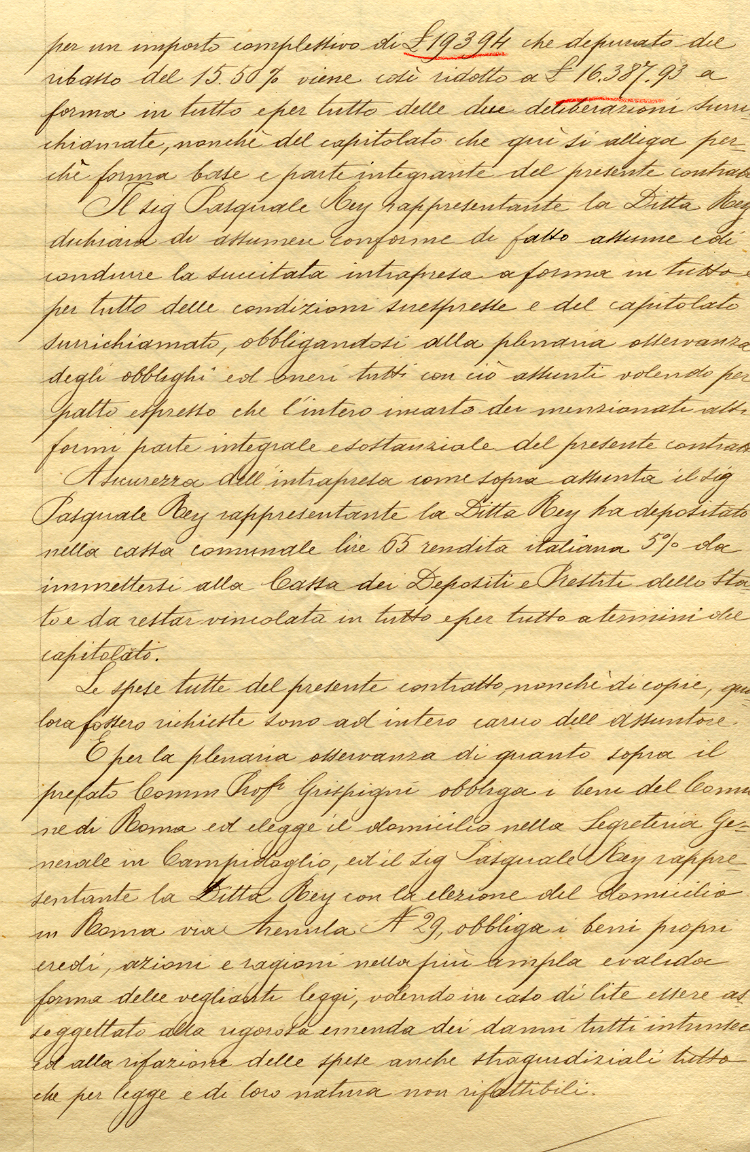 per un importo complessivo di £ 19394 che depurato del
ribasso del 15.50% viene così ridotto a £ 16.387.93 a
forma in tutto e per tutto delle due deliberazioni surri
chiamate, nonchè del capitolato che quì si allega per-
chè forma base e parte integrante del presente contratto
Il sig Pasquale Rey rappresentante la Ditta Rey
dichiara di assumere conforme di fatto assume e di
condurre la succitata intrapresa a forma in tutto e
per tutto delle condizioni surespresse e del capitolato
surrichiamato, obbligandosi alla plenaria osservanza
degli obblighi ed oneri tutti con ciò assunti volendo per
patto espresso che l'intero incarto dei menzionati atti
formi parte integrale e sostanziale del presente contratto
A sicurezza dell'intrapresa come sopra assunta il sig
Pasquale Rey rappresentante la Ditta Rey ha depositato
nella cassa comunale lire 65 rendita italiana 5% da
immettersi alla Cassa dei Depositi e Prestiti dello Sta
to e da restar vincolata in tutto e per tutto a termini del
capitolato.
Le spese tutte del presente contratto, nonchè di copie, qua
lora fossero richieste sono ad intero carico dell'assuntore.
E per la plenaria osservanza di quanto sopra il
prefato Comm Prof. Grispigni obbliga i beni del Comu
ne di Roma ed elegge il domicilio nella Segreteria Ge-
nerale in Campidoglio, ed il sig Pasquale Rey rappre-
sentante la Ditta Rey con la elezione del domicilio
in Roma via Arenula N 29, obbliga i beni propri
eredi, azioni e ragioni nella più ampla e valida
forma delle veglianti leggi, volendo in caso di lite essere as
soggettato alla rigorosa emenda dei danni tutti intrinseci
ed alla rifazione delle spese anche stragiudiziali tutto
che per legge e di loro natura non rifattibili.